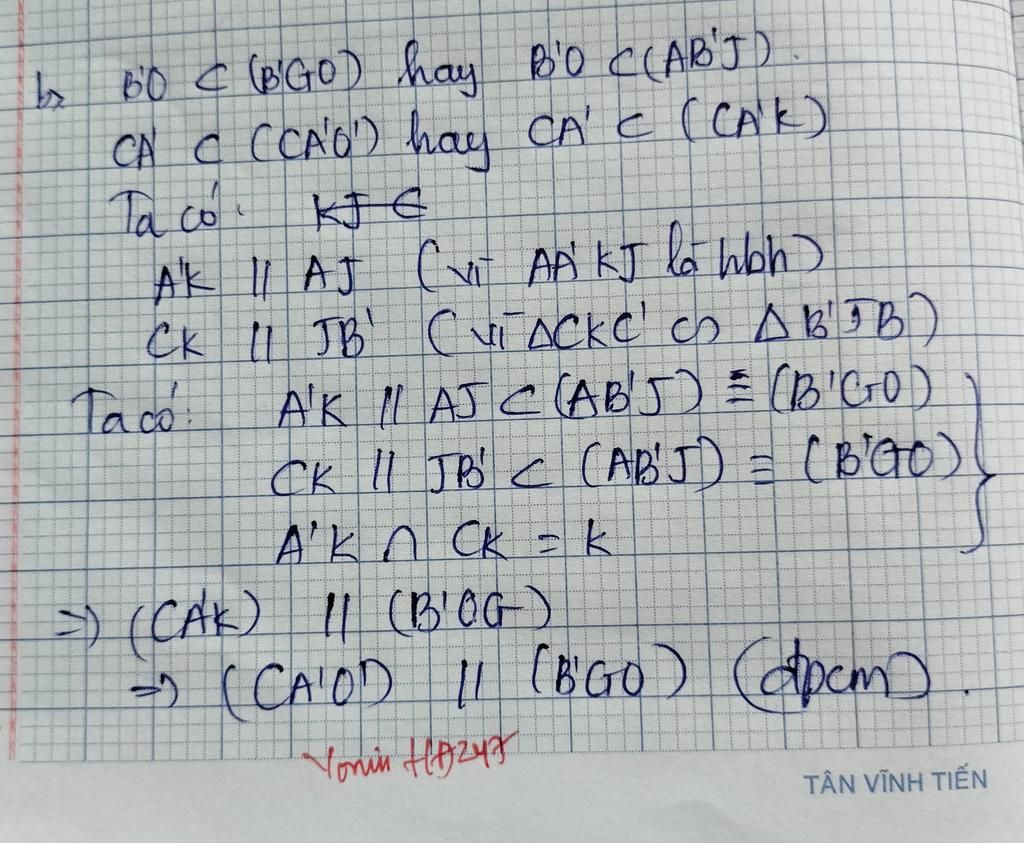 b, B'O ⊂ (B'GO) hay B'O ⊂ (AB'J).
CA' ⊂ (CA'O') hay CA' ⊂ (CA'K)
Ta có: KJ ⊂
A'K // AJ (vì AA'KJ là hbh)
CK // JB' (vì ΔCKC' ∽ ΔB'JB)
Ta có: A'K // AJ ⊂ (AB'J) ≡ (B'GO)
CK // JB' ⊂ (AB'J) ≡ (B'GO)
A'K ∩ CK = K
=> (CA'K) // (B'OG)
=> (CA'O') // (B'GO) (đpcm).
TÂN VĨNH TIẾN